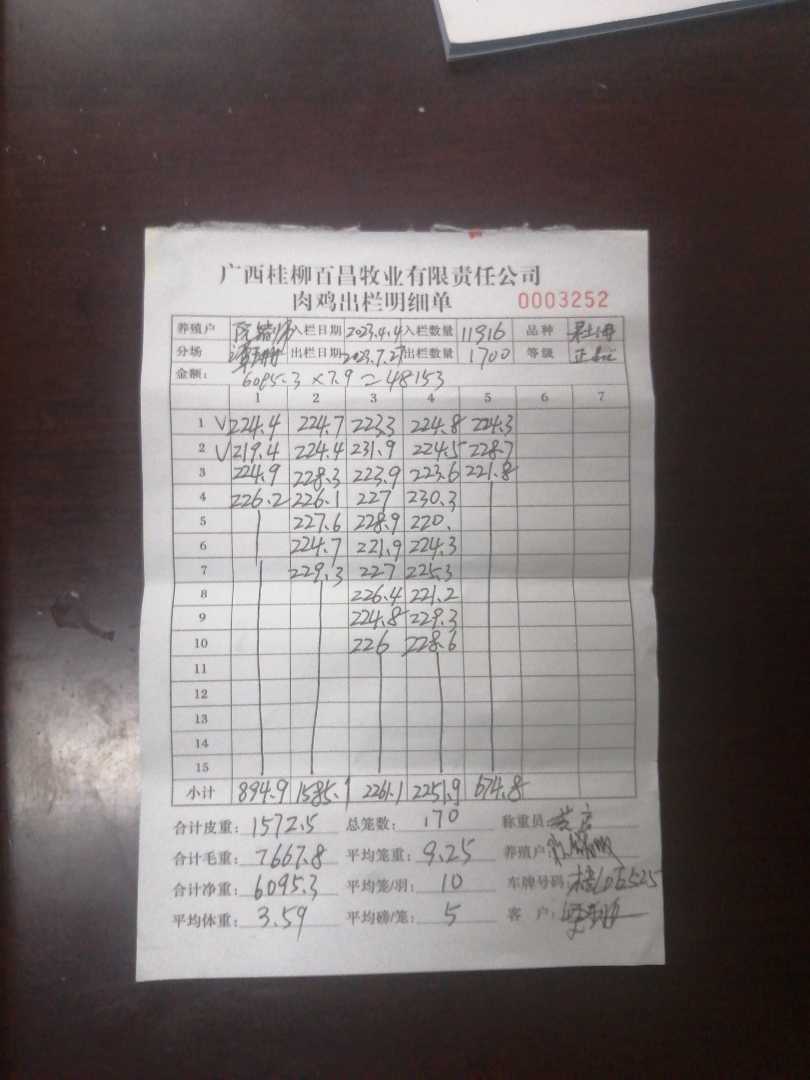 广西桂柳百昌牧业有限责任公司
肉鸡出栏明细单 0003252
养殖户 入栏日期 2023.4.4 入栏数量 11916 品种
分场 出栏日期 2023.7.27 出栏数量 1700 等级 正品
金额: 6095.3 × 7.9 = 48153
1 2 3 4 5 6 7
1 √224.4 224.7 223.3 224.8 224.3
2 √219.4 224.4 231.9 224.5 228.7
3 224.9 228.3 223.9 223.6 221.8
4 226.2 226.1 227 230.3
5 227.6 228.9 220.
6 224.7 221.9 224.3
7 229.3 227 225.3
8 226.4 221.2
9 224.8 229.3
10 226 228.6
11
12
13
14
15
小计 894.9 1585.1 2261.1 2251.9 674.8
合计皮重: 1572.5 总笼数: 170 称重员:
合计毛重: 7667.8 平均笼重: 9.25 养殖户:
合计净重: 6095.3 平均笼/羽: 10 车牌号码:
平均体重: 3.59 平均磅/笼: 5 客户: